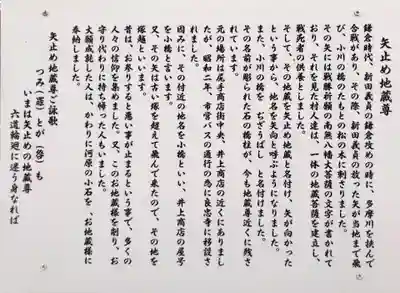 矢止め地蔵尊
鎌倉時代、新田義貞の鎌倉攻めの時に、多摩川を挟んで
合戦があり、その際、新田義貞の放った矢が当地まで飛
び、小川の橋のたもとの松の木に刺さりました。
その矢には戦勝祈願の南無八幡大菩薩の文字が書かれて
おり、それを見た村人達は、一体の地蔵菩薩を建立し、
戦死者の供養としました。
そして、その地蔵を矢止め地蔵と名付け、矢が向かった
という事から、地名を矢向と呼ぶようになりました。
また、小川の橋を ぢざうばし と名付けました。
その名前が彫られた石の橋柱が、今も地蔵尊近くに残さ
れています。
元の場所は尾手商店街中央、井上商店の近くにありまし
たが、昭和二年、市営バスの通行の急に良忠寺に移設さ
れました。
因みに、その付近の地名を小橋といい、井上商店の屋号
を小橋と言います。
又、その矢はいい塚を越えて飛んで来たので、その地を
塚越といいます。
昔は、お参りすると悪い事が止まるという事で、多くの
人々の信仰を集めました。又、このお地蔵様を削り、お
守り代わりに持ち帰った人もいました。
大願成就した人は、かわりに河原の小石を、お地蔵様に
奉納しました。
矢止め地蔵尊ご詠歌
つみ(罪)とが(咎)も
いまは矢止めの地蔵尊
六道輪廻に迷う身なれば